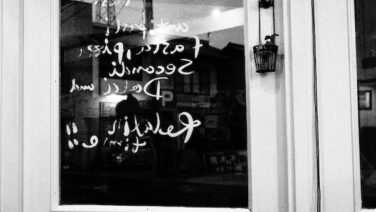 antipasti
Pasta, pizza,
Secondi
Dolci and
Relaxin
time!!